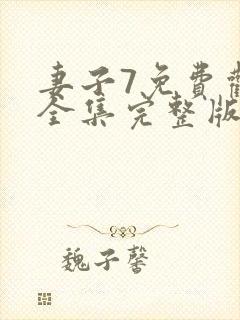 妻子7免費
全集完整版
魏子馨